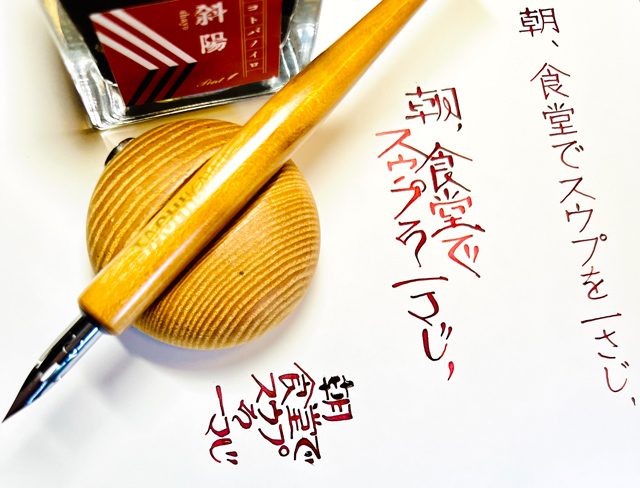 コトバノイロ
斜陽
shayo
朝、食堂でスウプを一さじ、
朝、食堂で
スウプを一さじ、
朝
食堂で
スウプを
一さじ